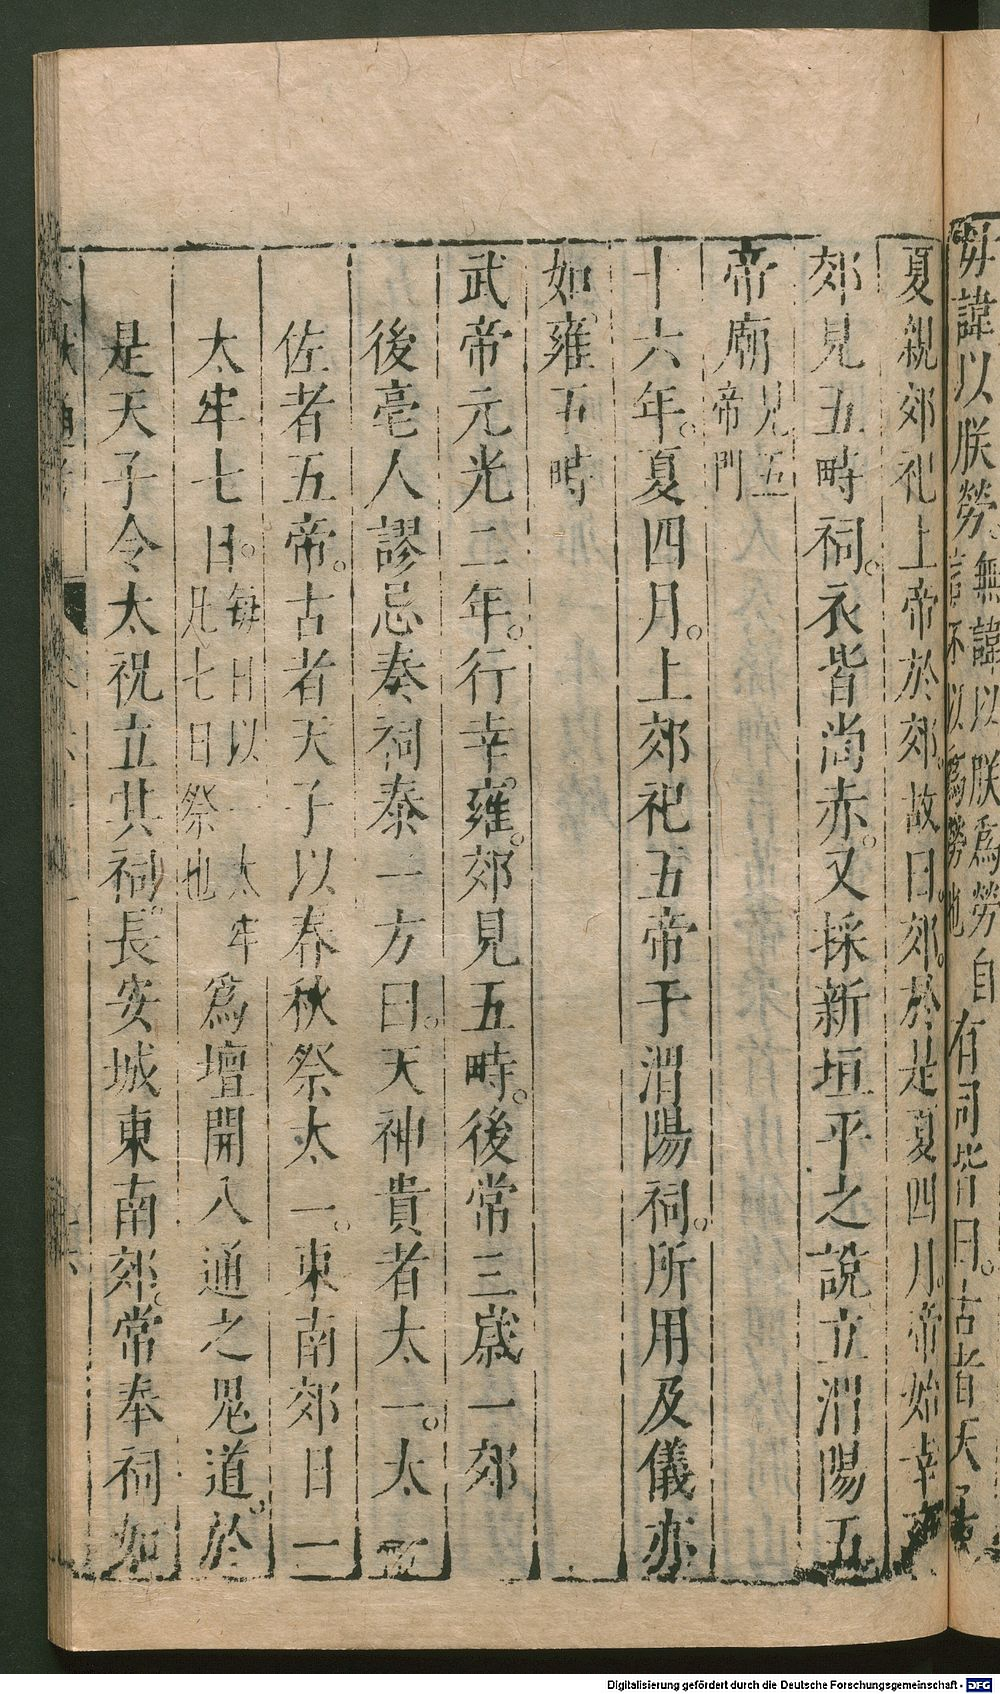 毋諱以朕勞。無諱以朕爲勞自諱不以爲勞也有司皆曰。古者天子
夏親郊祀上帝於郊。故曰郊。於是夏四月。帝始幸
郊見五畤祠。衣皆尚赤。又採新垣平之說立渭陽五
帝廟見五帝門
十六年。夏四月。上郊祀五帝于渭陽祠。所用及儀亦
如雍五畤
武帝元光二年。行幸雍。郊見五畤。後常三歲一郊
後亳人謬忌奏祠泰一方曰。天神貴者太一。太一
佐者五帝。古者天子以春秋祭太一。東南郊日一
太牢七日。每日以一太牢凡七日祭也爲壇開八通之鬼道。於
是天子令太祝立其祠。長安城東南郊。常奉祠如
Digitalisierung gefördert durch die Deutsche Forschungsgemeinschaft - DFG